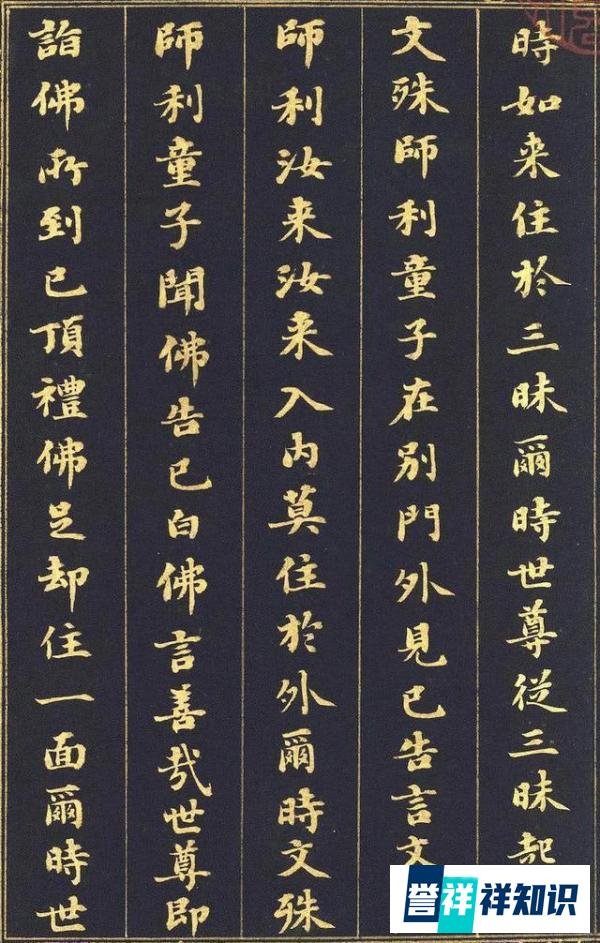 時如来住於三昧爾時世尊従三昧起
文殊師利童子在別門外見已告言文
師利汝来汝来入内莫住於外爾時文殊
師利童子聞佛告已白佛言善哉世尊即
詣佛所到已頂禮佛足却住一面爾時世
誉祥祥知识